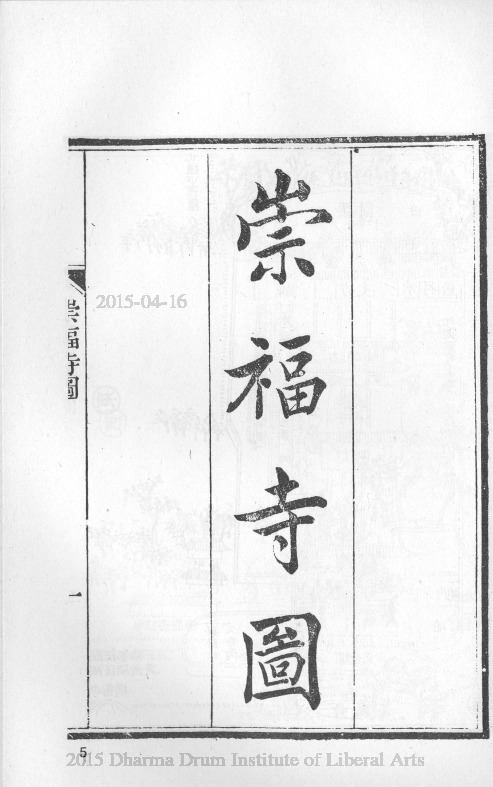 崇福寺圖
崇福寺圖
一
5
2015-04-16
2015 Dharma Drum Institute of Liberal Arts